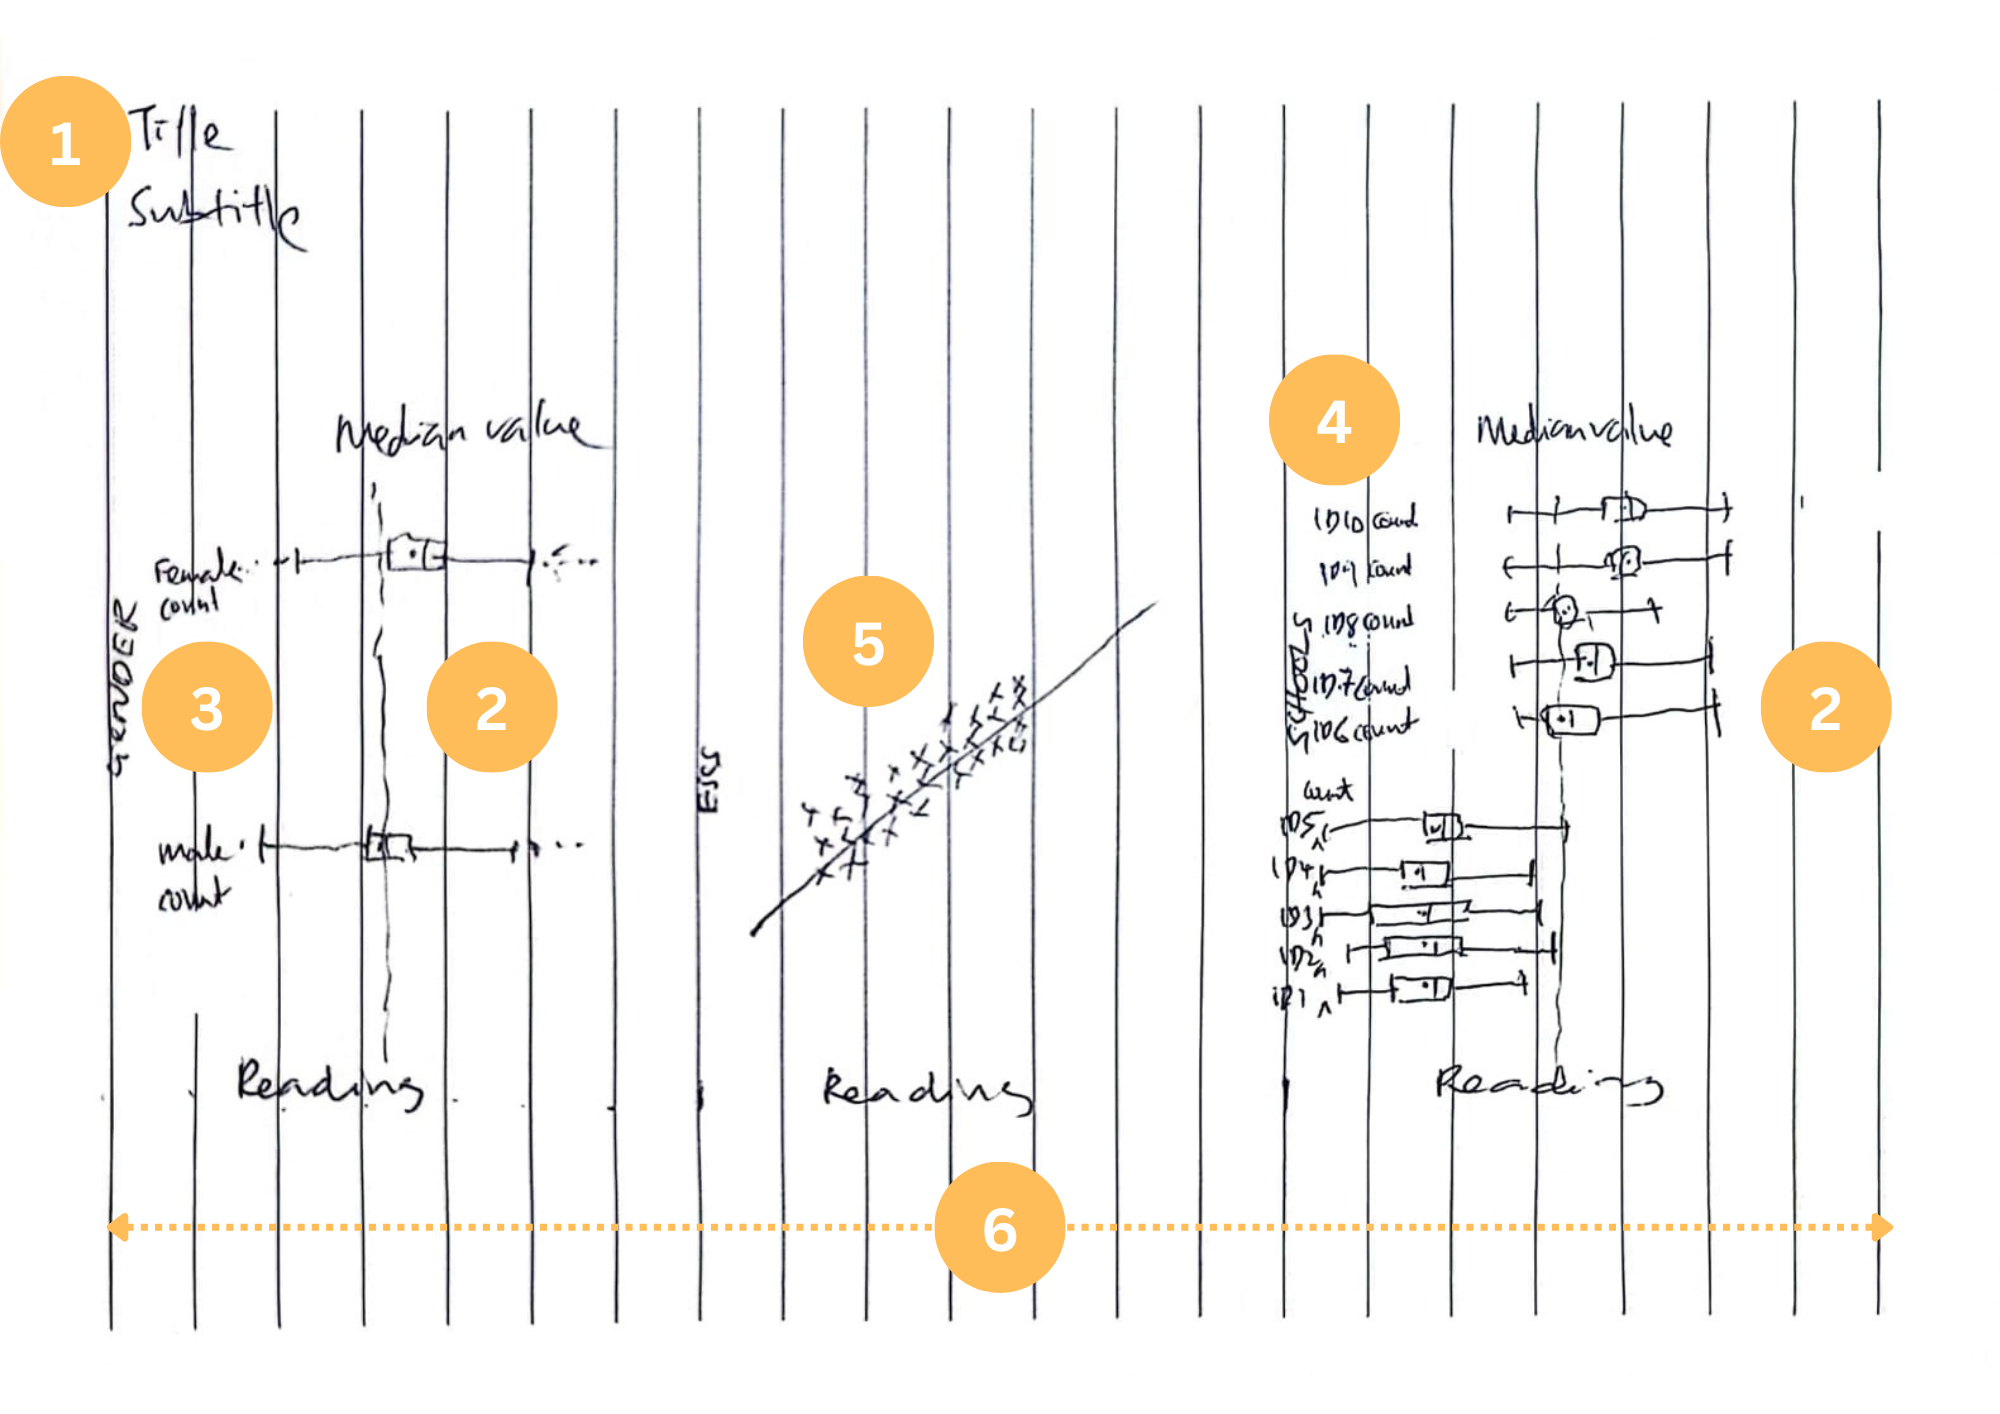 1
Title
Subtitle
Median value
Female
count
GENDER
3
2
male
count
Reading
5
ESCS
Reading
4
Median value
ID10 count
ID9 count
ID8 count
ID7 count
ID6 count
SCHOOLS
2
count
ID5
ID4
ID3
ID2
ID1
Reading
6